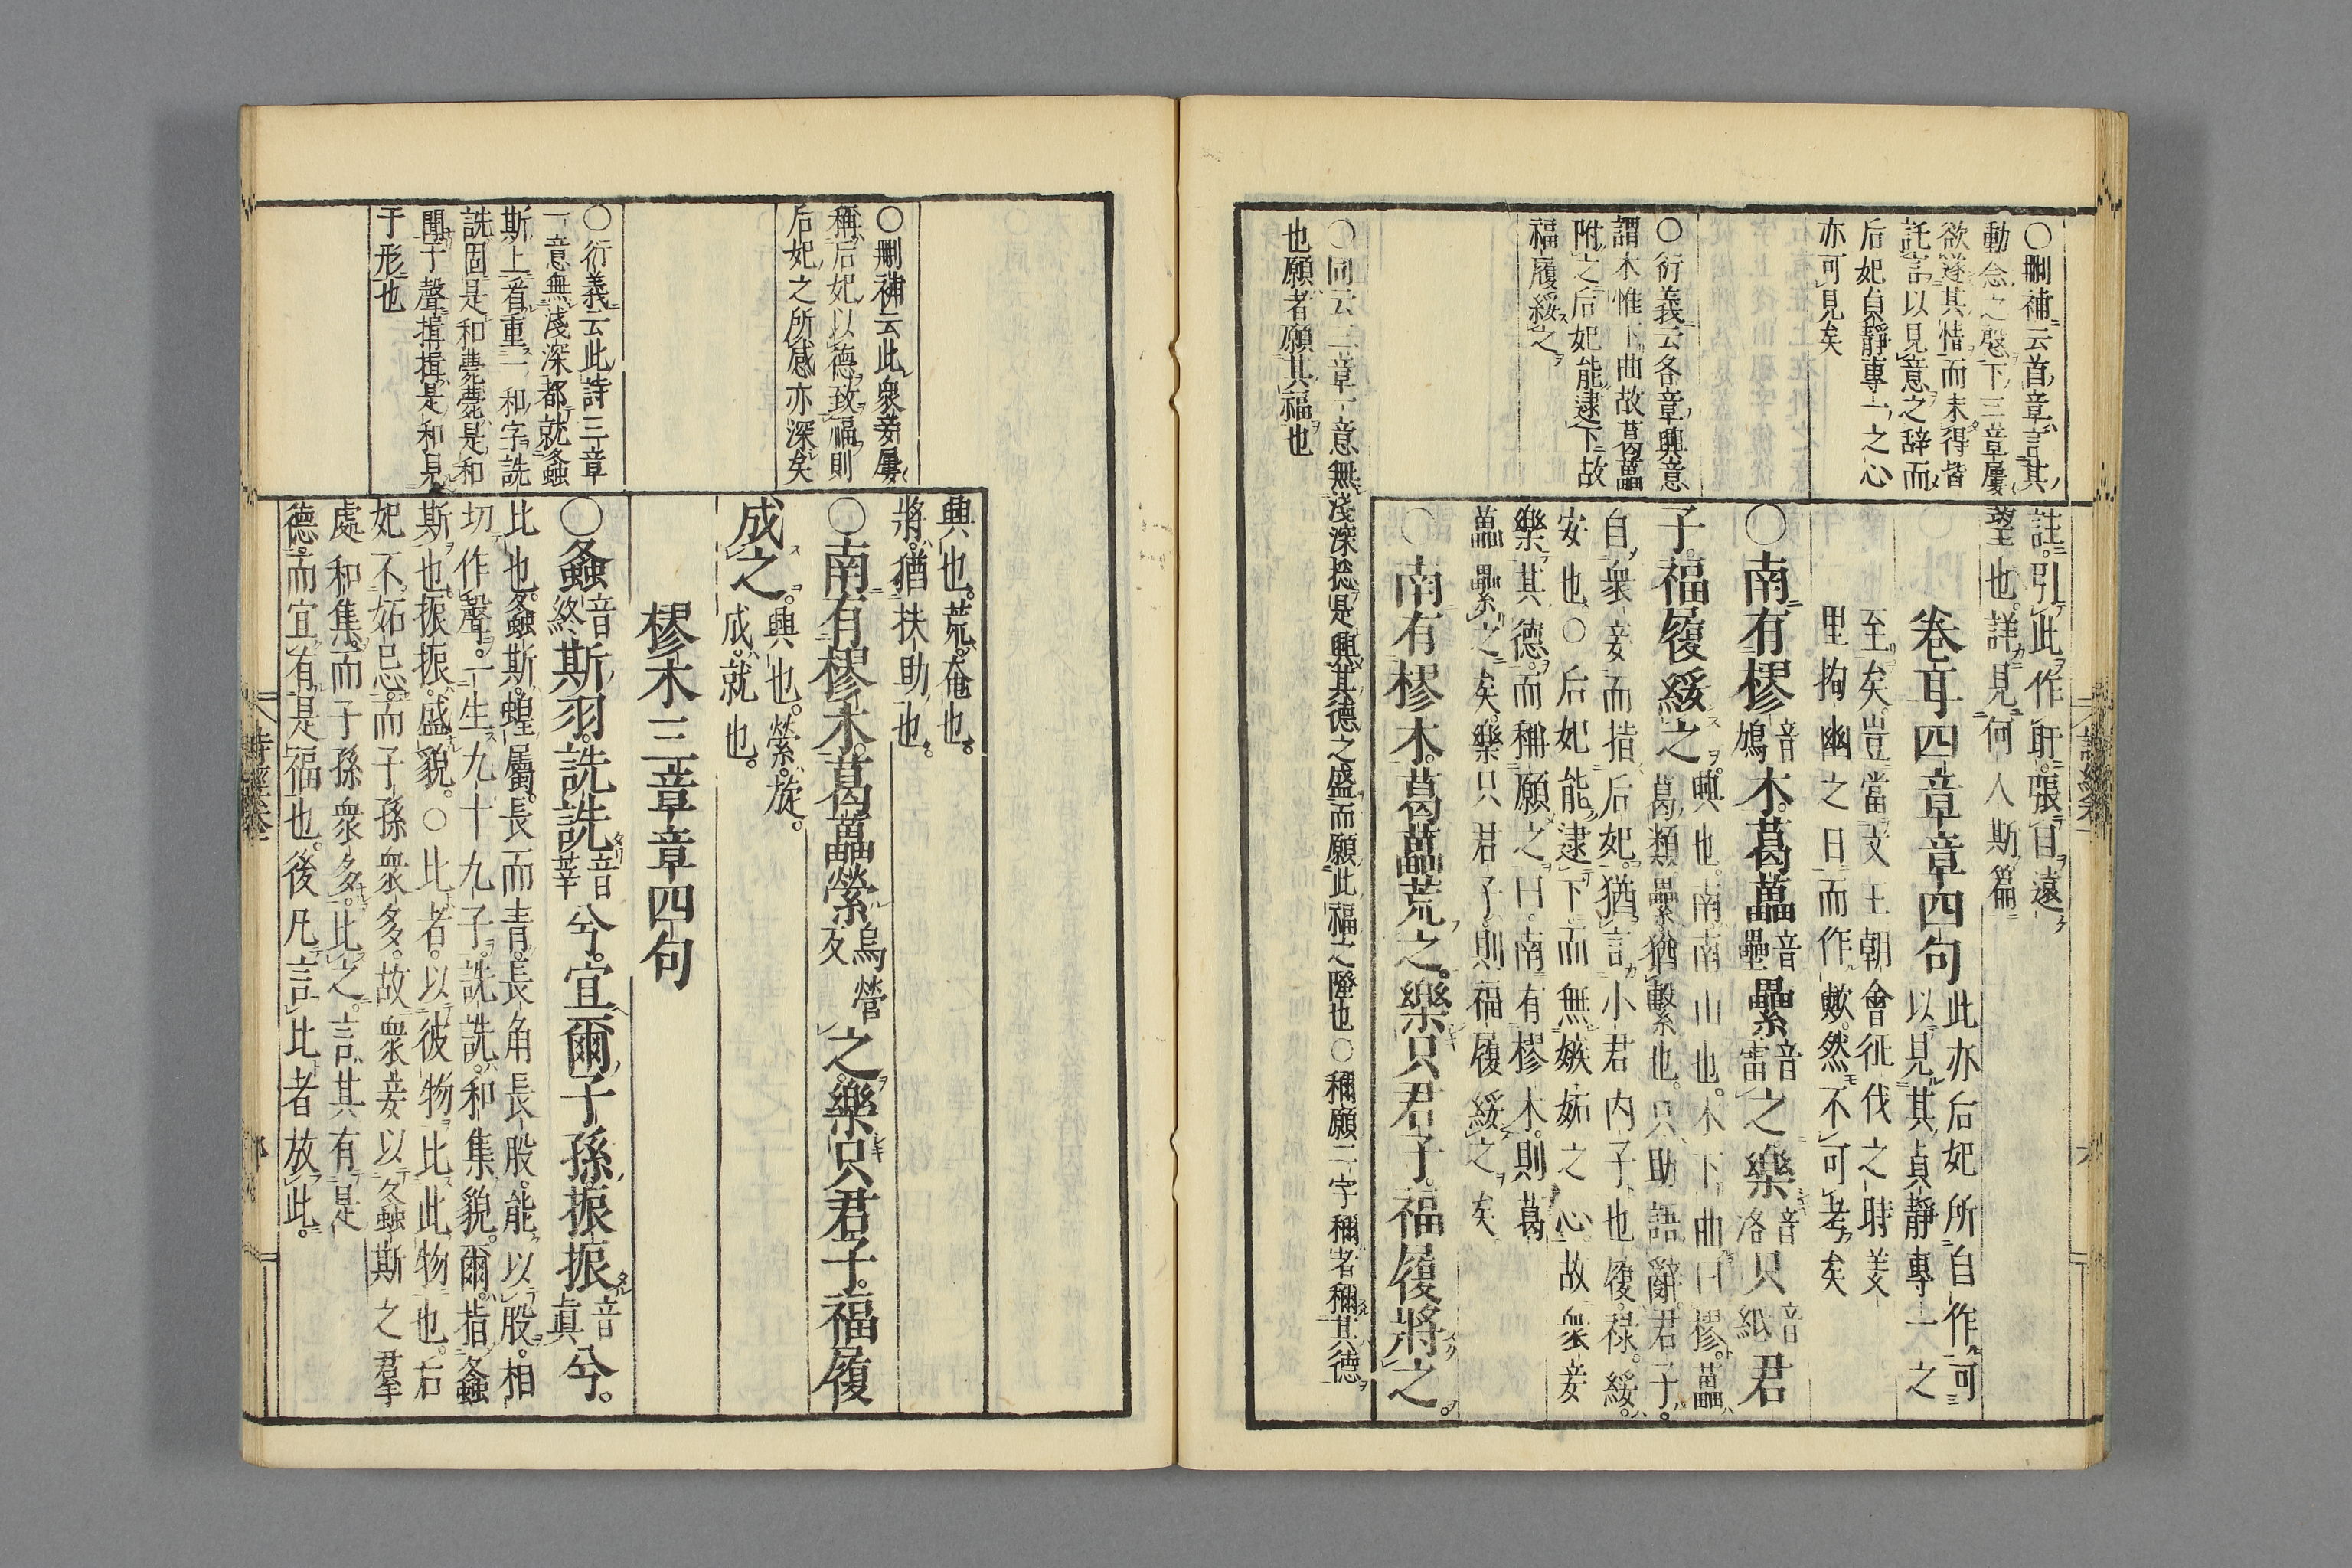 ○刪補云首章言其
動念之慇下三章屢
欲遂其情而未得皆
託言以見意之辞而
后妃貞靜專一之心
亦可見矣
○衍義云各章興意
謂木惟下曲故葛藟
附之后妃能逮下故
福履綏之
○同云三章一意無淺深捴是興其德之盛而願此福之隆也○稱願二字稱者稱其德
也願者願其福也
註引此作盱張目遠
望也詳見何人斯篇
卷耳四章章四句此亦后妃所自作可
以見其貞靜專一之
至矣豈當文王朝會征伐之時羑
里拘幽之日而作歟然不可考矣
○南有樛音鳩木葛藟音壘纍音雷之樂音洛只音紙君
子福履綏之興也南南山也木下曲曰樛藟
葛類纍猶繫也只助語辭君子
自衆妾而指后妃猶言小君内子也履祿綏
安也○后妃能逮下而無嫉妬之心故衆妾
樂其德而稱願之曰南有樛木則葛
藟纍之矣樂只君子則福履綏之矣
○南有樛木葛藟荒之樂只君子福履將之
興也荒奄也
將猶扶助也
○南有樛木葛藟縈烏營反之樂只君子福履
成之興也縈旋
成就也
樛木三章章四句
○螽音終斯羽詵詵音莘兮宜爾子孫振振音眞兮
比也螽斯蝗屬長而青長角長股能以股相
切作聲一生九十九子詵詵和集貌爾指螽
斯也振振盛貌○比者以彼物比此物也后
妃不妬忌而子孫衆多故衆妾以螽斯之羣
處和集而子孫衆多比之言其有是
德而宜有是福也後凡言比者放此
○刪補云此衆妾屢
稱后妃以德致福則
后妃之所感亦深矣
○衍義云此詩三章
一意無淺深都就螽
斯上看重一和字詵
詵固是和薨薨是和
聞于聲揖揖是和見
于形也
詩經卷一